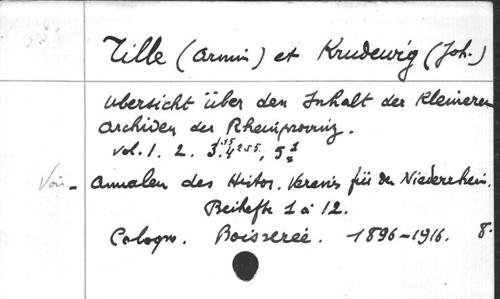 Tille (Armin) et Krudewig (Joh.)
Ubersicht über den Inhalt der Kleineren
Archiven der Rheinprovinz.
vol. 1. 2. 3. 4 5
Voir - Annalen des Histor. Vereins für den Niederrhein.
Beihefte 1 à 12.
Cologne. Boisserée. 1896-1916. 8.